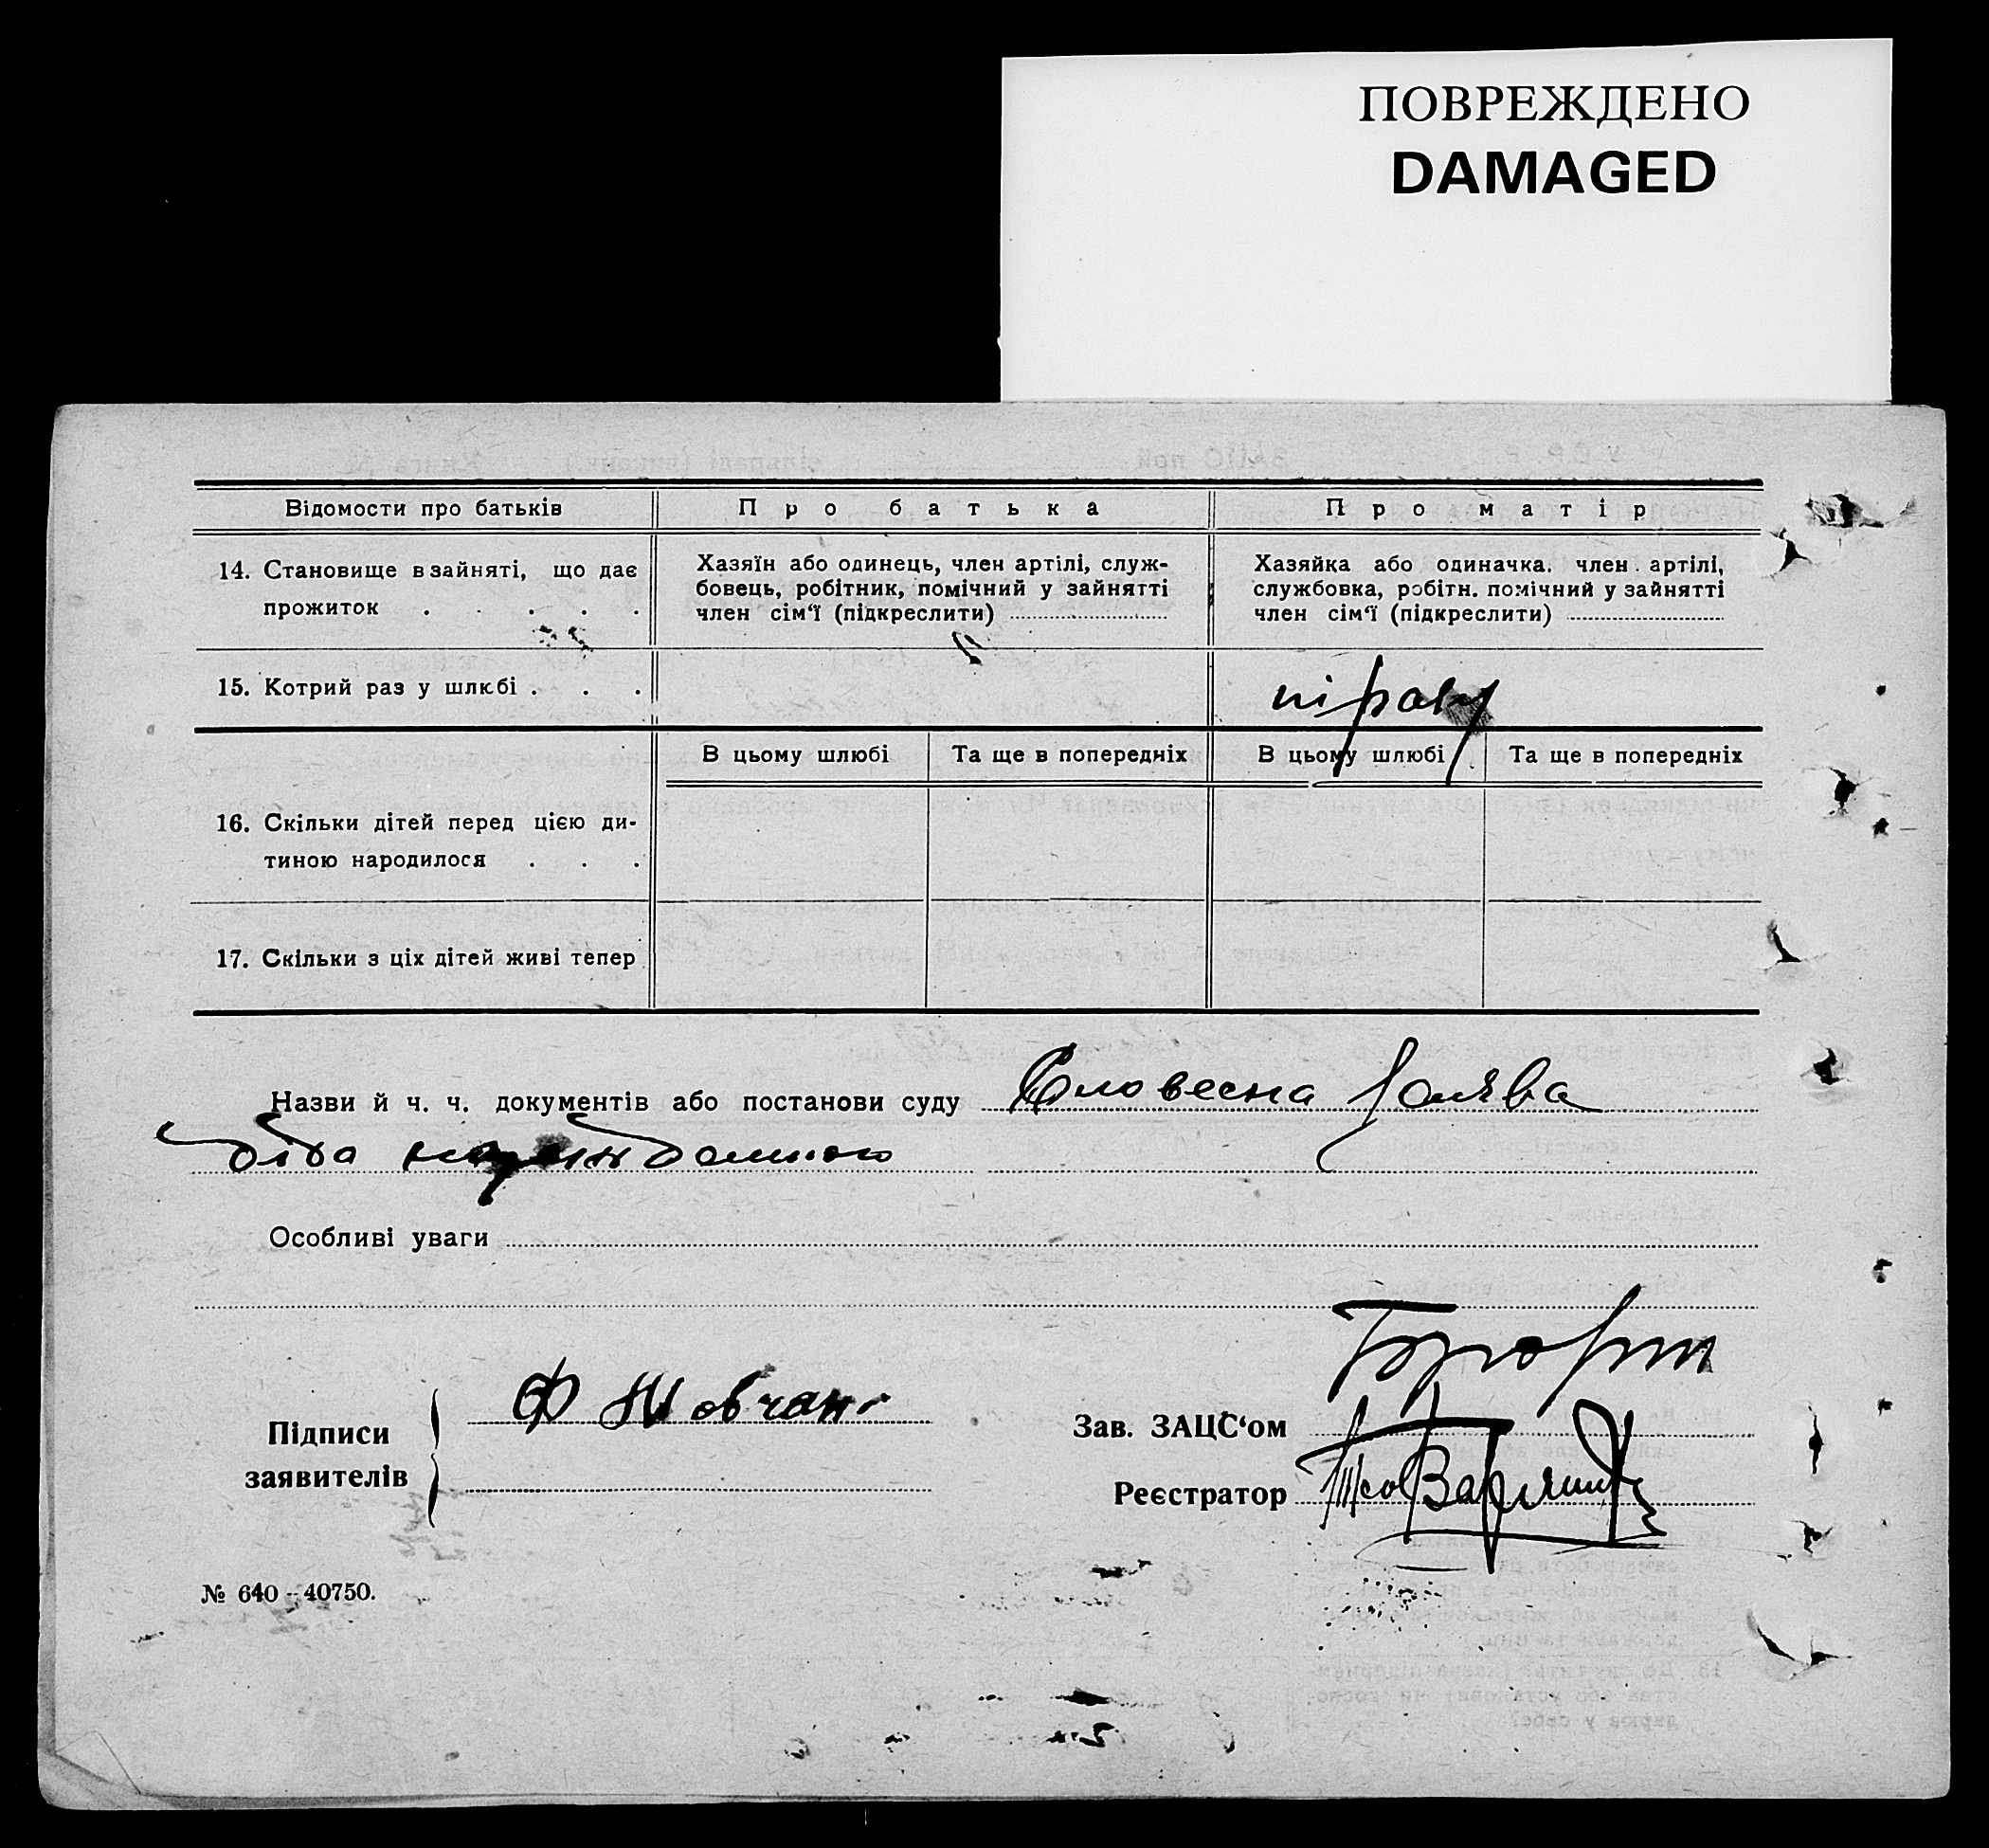 ПОВРЕЖДЕНО
DAMAGED
Відомости про батьків
Про батька
Про матір
14. Становище в зайняті, що дає
прожиток . . . . .
Хазяїн або одинець, член артілі, служ-
бовець, робітник, помічний у зайнятті
член сім‘ї (підкреслити)
Хазяйка або одиначка, член артілі,
службовка, робітн. помічний у зайнятті
член сім‘ї (підкреслити)
15. Котрий раз у шлюбі . . .
В цьому шлюбі
Та ще в попередніх
В цьому шлюбі
Та ще в попередніх
16. Скільки дітей перед цією ди-
тиною народилося . . .
17. Скільки з ціх дітей живі тепер
Назви й ч. ч. документів або постанови суду Словесна заява
діда
Особливі уваги
Підписи
заявителів
Ф
Зав. ЗАЦС‘ом
Реєстратор
№ 640 - 40750.